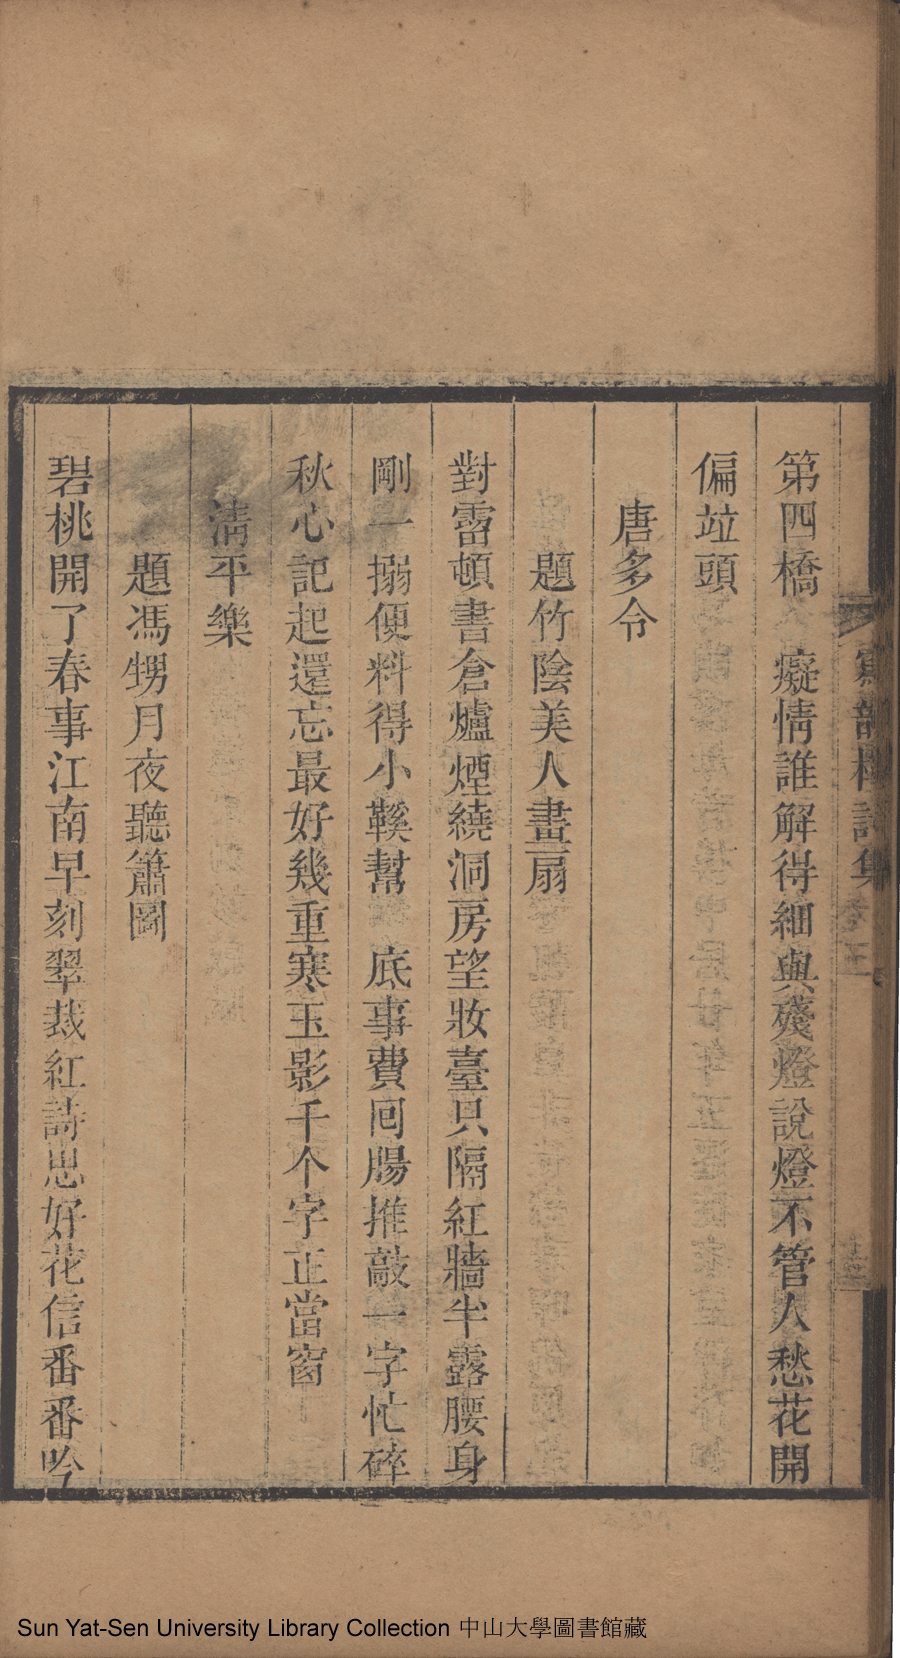 第四橋　癡情誰解得細與殘燈說燈不管人愁花開
偏竝頭
唐多令
題竹陰美人畫扇
對霤頓書倉爐煙繞洞房望妝臺只隔紅牆半露腰身
剛一搦便料得小鞵幫　底事費囘腸推敲一字忙碎
秋心記起還忘最好幾重寒玉影千个字正當窗
清平樂
題馮甥月夜聽簫圖
碧桃開了春事江南早刻翠裁紅詩思好花信番番吟
Sun Yat-Sen University Library Collection 中山大學圖書館藏